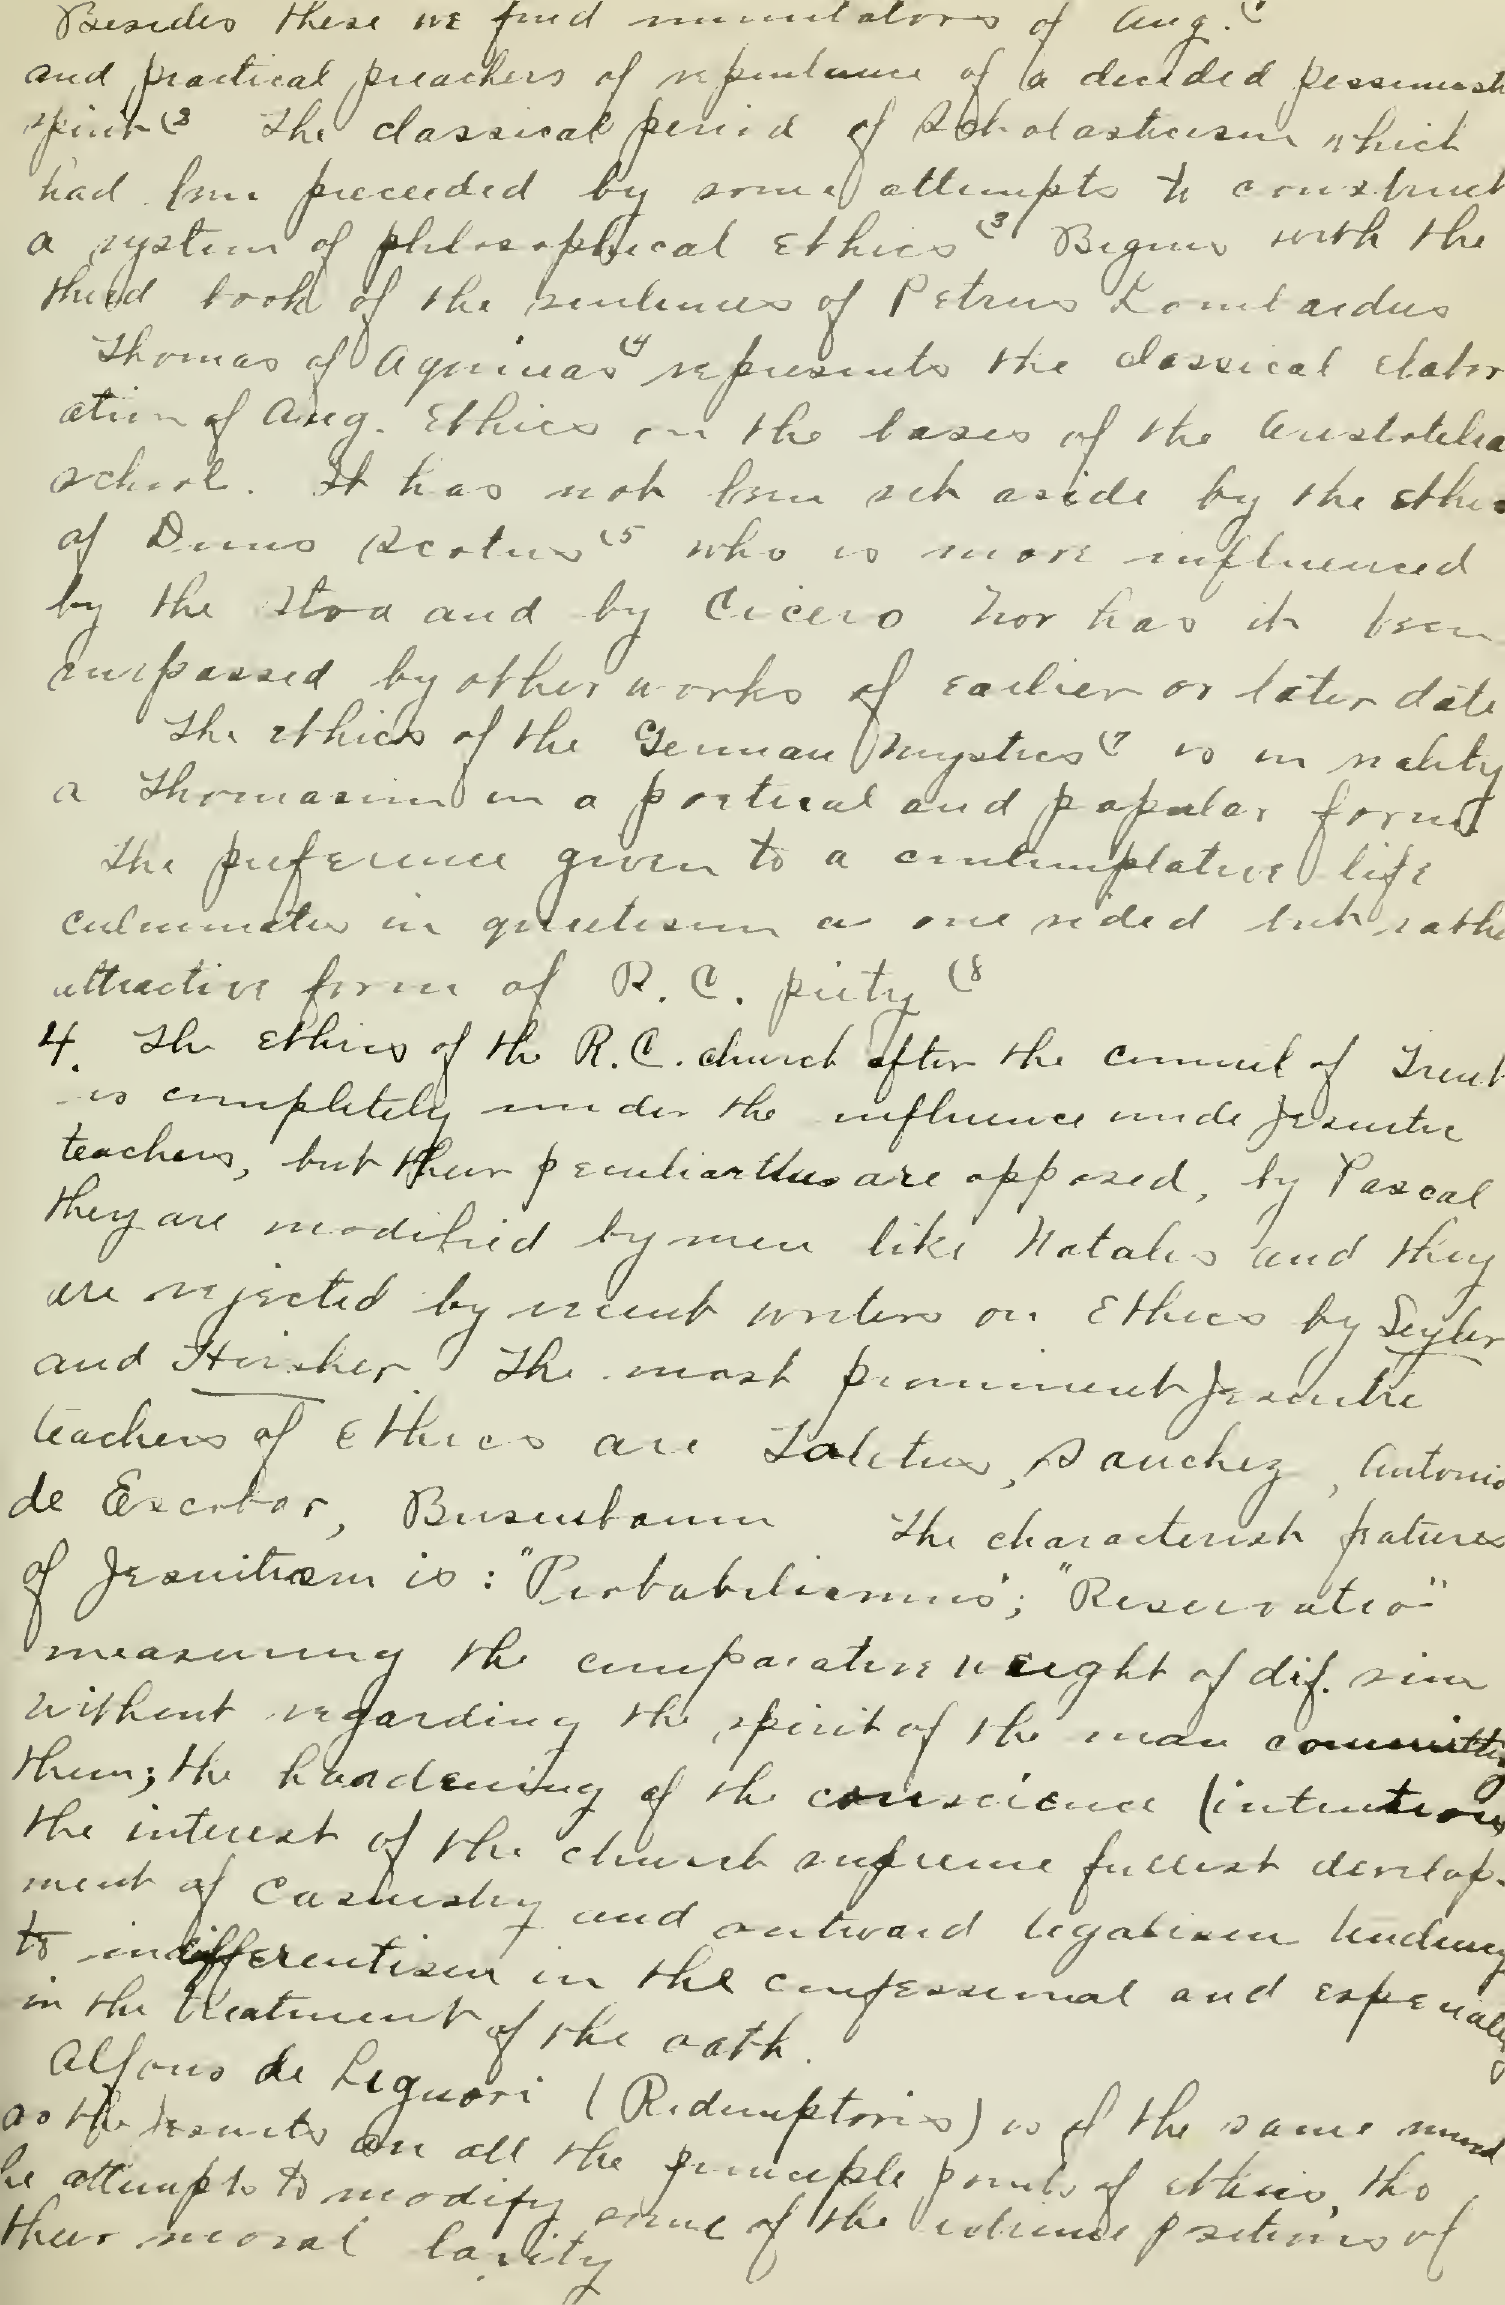 Besides these we find immitators of Aug. (1
and practical preachers of repentance of a decided pessimisti
spirit (2 The classical period of Scholasticism which
had been preceeded by some attempts to construct
a system of philosophical Ethics (3 Begins with the
third book of the sentences of Petrus Lombardus
Thomas of Aquinas (4 represents the classical elabor
ation of Aug. Ethics on the bases of the Aristotelia
school. It has not been set aside by the ethics
of Duns Scotus (5 who is more influenced
by the Stoa and by Cicero Nor has it been
surpassed by other works of earlier or later date
The ethics of the German Mystics (7 is in reality
a Thomasism in a poetical and popular form
The preference given to a contemplative life
culminates in quietism a one sided but rathe
attractive form of R. C. piety (8
4. The Ethics of the R. C. church after the council of Trent
is completely under the influence unde Jesuitic
teachers, but their peculiarities are opposed, by Pascal
they are modified by men like Natalis and they
are rejected by recent writers on Ethics by Seyler
and Hirsher The most prominent Jesuitic
teachers of Ethics are Toletus, Sanchez, Antonio
de Escobar, Busenbaum The characterist features
of Jesuitism is: "Probabilismus; "Reservatio"
measuring the comparative weight of dif. sins
without regarding the spirit of the man committing
them; the hardening of the conscience (intentions
the interest of the church supreme fullest develop-
ment of casuistry and outward legalism tendency
to indifferentism in the confessional and especially
in the treatment of the oath.
Alfons de Liguori (Redemptoris) is of the same mind
as the Jesuits on all the principle points of ethics, tho
he attempts to modify some of the extreme positions of
their moral laxity